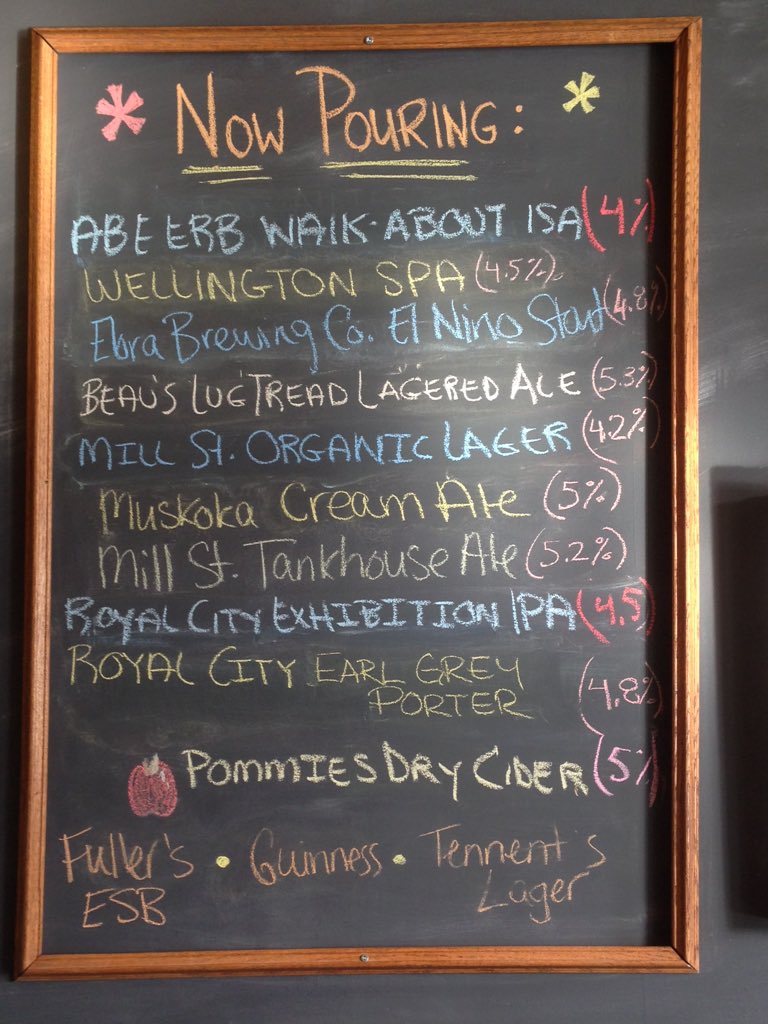 * NOW POURING: *
ABE ERB WALK-ABOUT ISA (4%)
WELLINGTON SPA (4.5%)
Elora Brewing Co. El Nino Stout (4.8%)
BEAU'S LUGTREAD LAGERED ALE (5.3%)
MILL St. ORGANIC LAGER (4.2%)
Muskoka Cream Ale (5%)
Mill St. Tankhouse Ale (5.2%)
ROYAL CITY EXHIBITION IPA (4.5)
ROYAL CITY EARL GREY
PORTER (4.8%)
POMMIES DRY CIDER (5%)
Fuller's • Guinness • Tennent's
ESB Lager